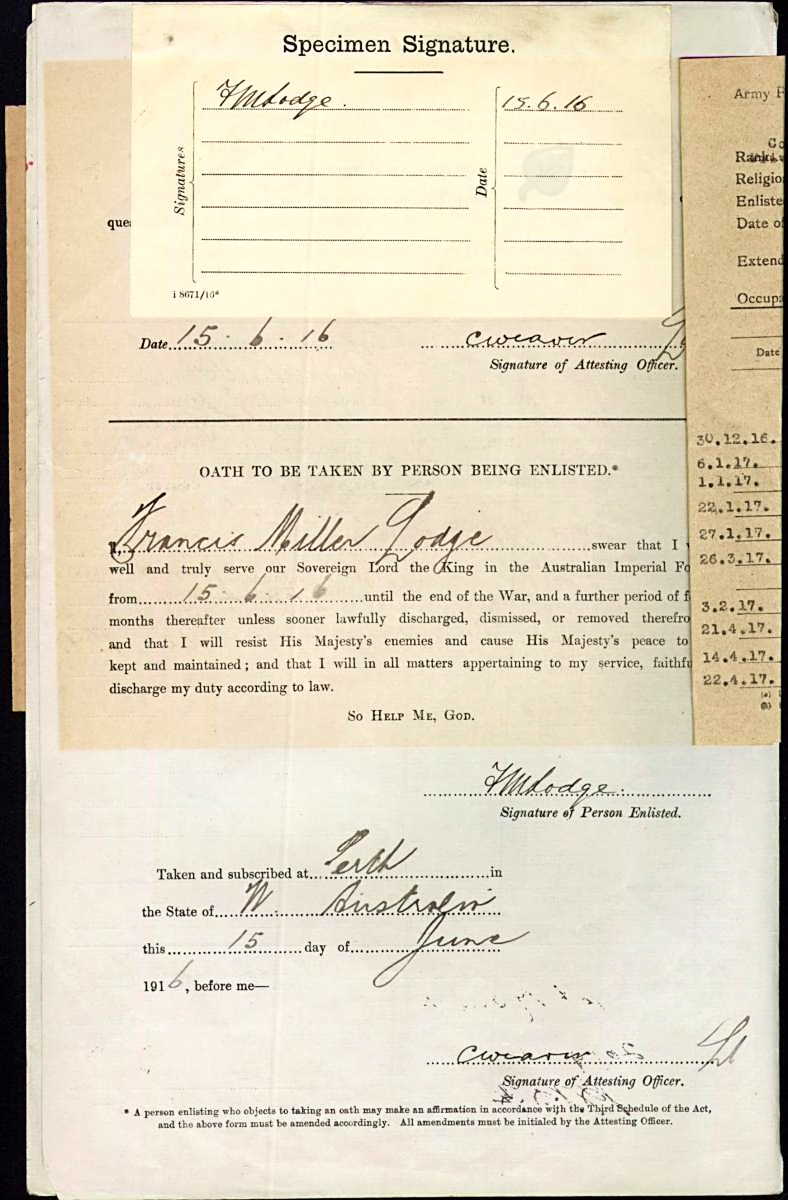 Specimen Signature.
Signatures
FMLodge.
Date
15.6.16
18671/16*
que
Date 15.6.16 CWeaver Lt
Signature of Attesting Officer.
OATH TO BE TAKEN BY PERSON BEING ENLISTED.*
I, Francis Miller Lodge swear that I
well and truly serve our Sovereign Lord the King in the Australian Imperial Fo
from 15.6.16 until the end of the War, and a further period of f
months thereafter unless sooner lawfully discharged, dismissed, or removed therefro
and that I will resist His Majesty's enemies and cause His Majesty's peace to
kept and maintained; and that I will in all matters appertaining to my service, faithfu
discharge my duty according to law.
So Help Me, God.
FMLodge.
Signature of Person Enlisted.
Taken and subscribed at Perth in
the State of W. Australia
this 15 day of June
1916, before me—
CWeaver Lt
Signature of Attesting Officer.
* A person enlisting who objects to taking an oath may make an affirmation in accordance with the Third Schedule of the Act,
and the above form must be amended accordingly. All amendments must be initialed by the Attesting Officer.
Army F
Rank
Religio
Enliste
Date of
Extend
Occupa
Date
30.12.16.
6.1.17.
1.1.17.
22.1.17.
27.1.17.
26.3.17.
3.2.17.
21.4.17.
14.4.17.
22.4.17.
(a)
(b)